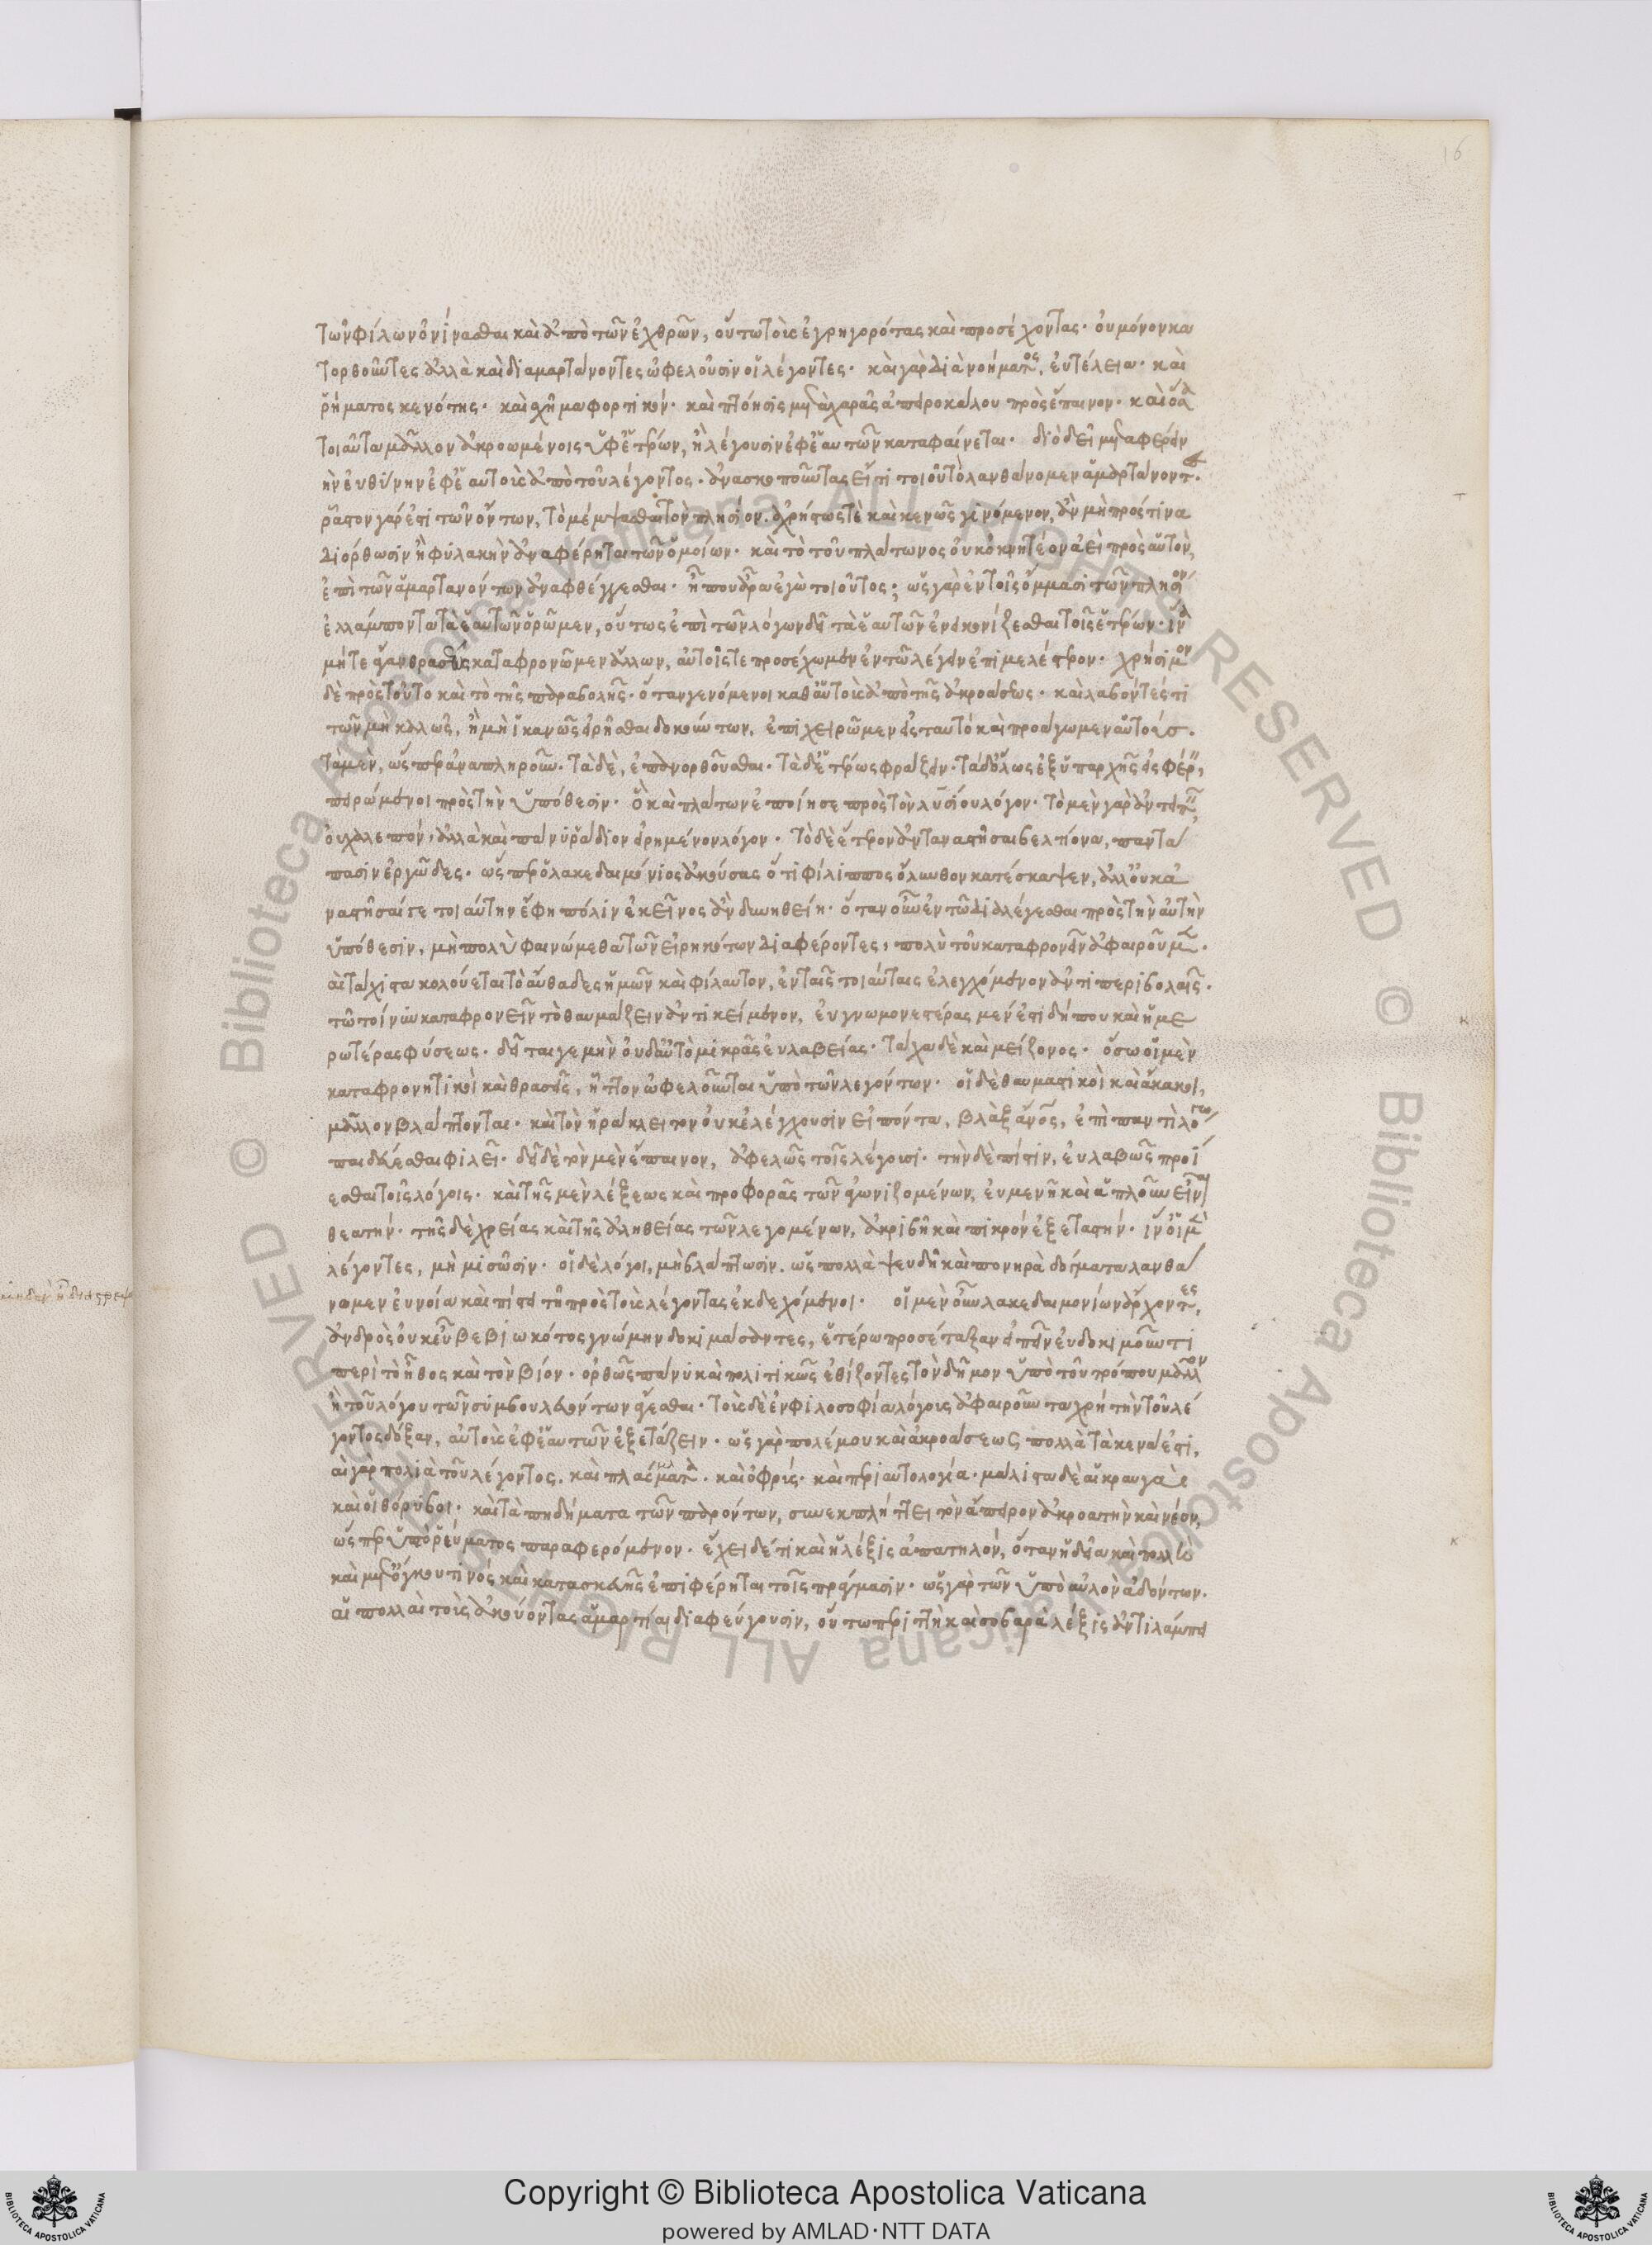 16
τῶν φίλων ὀνίνασθαι καὶ ἀπὸ τῶν ἐχθρῶν, οὕτω τοὺς ἐγρηγορότας καὶ προσέχοντας· οὐ μόνον κα
τορθοῦντες ἀλλὰ καὶ διαμαρτάνοντες ὠφελοῦσιν οἱ λέγοντες· καὶ γὰρ διὰνοήματος, εὐτέλεια· καὶ
ῥήματος κενότης· καὶ σχῆμα φορτικόν· καὶ πτόησις μετὰ χαρᾶς ἀπειροκάλου πρὸς ἔπαινον· καὶ ὅσα
τοιαῦτα μᾶλλον ἀκροωμένοις ὑφ' ἑτέρων, ἢ λέγουσιν ἐφ' ἑαυτῶν καταφαίνεται· διὸ δεῖ μεταφέρειν
ὴν εὐθύνην ἐφ' ἑαυτοὺς ἀπὸ τοῦ λέγοντος· ἀνασκοποῦντας εἴ τι τοιοῦτο λανθάνομεν ἁμαρτάνοντες.
ῥᾷστον γάρ ἐστι τῶν ὄντων, τὸ μέμψασθαι τὸν πλησίον. ἀχρήστως τὲ καὶ κενῶς γινόμενον, ἂν μὴ πρός τινα
διόρθωσιν ἢ φυλακὴν ἀναφέρηται τῶν ὁμοίων· καὶ τὸ τοῦ πλάτωνος οὐκ ὀκνητέον ἀεὶ πρὸς αὑτὸν,
ἐπὶ τῶν ἁμαρτανόντων ἀναφθέγγεσθαι· ἦ που ἆρα ἐγὼ τοιοῦτος; ὡς γὰρ ἐν τοῖς ὄμμασι τῶν πλησίον
ἐλλάμποντα τὰ ἑαυτῶν ὁρῶμεν, οὕτως ἐπὶ τῶν λόγων δεῖ τὰ ἑαυτῶν ἐνεικονίζεσθαι τοῖς ἑτέρων· ἵνα
μήτε ἄγαν θρασέως καταφρονῶμεν ἄλλων, αὑτοῖς τε προσέχωμεν ἐν τῷ λέγειν ἐπιμελέστερον· χρήσιμον
δὲ πρὸς τοῦτο καὶ τὸ τῆς παραβολῆς· ὅταν γενόμενοι καθ' αὑτοὺς ἀπὸ τῆς ἀκροάσεως· καὶ λαβόντές τι
τῶν μὴ καλῶς, ἢ μὴ ἱκανῶς εἰρῆσθαι δοκούντων, ἐπιχειρῶμεν εἰς ταυτό καὶ προάγωμεν αὑτούς.
τὰ μὲν, ὥσπερ ἀναπληροῦν. τὰ δὲ, ἐπανορθοῦσθαι· τὰ δ' ἑτέρως φράζειν· τὰ δ' ὅλως ἐξ ὑπαρχῆς εἰσφέρειν,
πειρώμενοι πρὸς τὴν ὑπόθεσιν· ὃ καὶ πλάτων ἐποίησε πρὸς τὸν λυσίου λόγον· τὸ μὲν γὰρ ἀντειπεῖν
οὐ χαλεπόν, ἀλλὰ καὶ πάνυ ῥᾴδιον εἰρημένον λόγον· τὸ δὲ ἕτερον ἀνταναστῆσαι βελτίονα, παντά
πασιν ἐργῶδες· ὥσπερ ὁ λακεδαιμόνιος ἀκούσας ὅτι φίλιππος ὄλυνθον κατέσκαψεν, ἀλλ' οὐκ ἀ
ναστῆσαί γε τοιαύτην ἔφη πόλιν ἐκεῖνος ἂν δυνηθείη· ὅταν οὖν ἐν τῷ διαλέγεσθαι πρὸς τὴν αὐτὴν
ὑπόθεσιν, μὴ πολὺ φαινώμεθα τῶν εἰρηκότων διαφέροντες, πολὺ τοῦ καταφρονεῖν ἀφαιροῦμεν.
καὶ τάχιστα κολούεται τὸ αὔθαδες ἡμῶν καὶ φίλαυτον, ἐν ταῖς τοιαύταις ἐλεγχόμενον ἀντιπεριβολαῖς.
τῷ τοίνυν καταφρονεῖν τὸ θαυμάζειν ἀντικείμενον, εὐγνωμονεστέρας μέν ἐστι δήπου καὶ ἡμε
ρωτέρας φύσεως· δεῖται γε μὴν οὐδ' αὐτὸ μικρᾶς εὐλαβείας· τάχα δὲ καὶ μείζονος· ὅσω οἱ μὲν
καταφρονητικοὶ καὶ θρασεῖς, ἧττον ὠφελοῦνται ὑπὸ τῶν λεγόντων· οἱ δὲ θαυμαστικοὶ καὶ ἄκακοι,
μᾶλλον βλάπτονται· καὶ τὸν ἡράκλειτον οὐκ ἐλέγχουσιν εἰπόντα, βλὰξ ἄνθρωπος, ἐπὶ παντὶ λόγω
παιδεύεσθαι φιλεῖ· δεῖ δὲ τὸν μὲν ἔπαινον, ἀφελῶς τοῖς λέγουσι· τὴν δὲ πίστιν, εὐλαβῶς προΐ
εσθαι τοῖς λόγοις· καὶ τῆς μὲν λέξεως καὶ προφορᾶς τῶν ἀγωνιζομένων, εὐμενῆ καὶ ἁπλοῦν εἶναι
θεατήν· τῆς δὲ χρείας καὶ τῆς ἀληθείας τῶν λεγομένων, ἀκριβῆ καὶ πικρὸν ἐξεταστήν· ἵν' οἱ μὲν
λέγοντες, μὴ μισῶσιν· οἱ δὲ λόγοι, μὴ βλάπτωσιν. ὡς πολλὰ ψευδῆ καὶ πονηρὰ δόγματα λανθά
νομεν εὐνοία καὶ πίστει τῇ πρὸς τοὺς λέγοντας ἐκδεχόμενοι· οἱ μὲν οὖν λακεδαιμονίων ἄρχοντες,
ἀνδρὸς οὐκ εὖ βεβιωκότος γνώμην δοκιμάσαντες, ἑτέρω προσέταξαν εἰπεῖν εὐδοκιμοῦντι
περὶ τὸ ἦθος καὶ τὸν βίον· ὀρθῶς πάνυ καὶ πολιτικῶς ἐθίζοντες τὸν δῆμον ὑπὸ τοῦ τρόπου μᾶλλον
ἢ τοῦ λόγου τῶν συμβουλευόντων ἄγεσθαι· τοὺς δὲ ἐν φιλοσοφία λόγους ἀφαιροῦντα χρὴ τὴν τοῦ λέ
γοντος δόξαν, αὐτοὺς ἐφ' ἑαυτῶν ἐξετάζειν· ὡς γὰρ πολέμου καὶ ἀκροάσεως πολλὰ τὰ κενά ἐστι,
καὶ γὰρ πολιὰ τοῦ λέγοντος. καὶ πλάσματα. καὶ ὀφρύς· καὶ περιαυτολογία· μάλιστα δὲ αἱ κραυγαὶ
καὶ οἱ θόρυβοι· καὶ τὰ πηδήματα τῶν παρόντων, συνεκπλήττει τὸν ἄπειρον ἀκροατὴν καὶ νέον,
ὥσπερ ὑπὸ ῥεύματος παραφερόμενον· ἔχει δέ τι καὶ ἡ λέξις ἀπατηλόν, ὅταν ἡδεῖα καὶ πολλὴ
καὶ μετ' ὄγκου τινός καὶ κατασκευῆς ἐπιφέρηται τοῖς πράγμασιν· ὡς γὰρ τῶν ὑπὸ αὐλὸν ἀδόντων.
αἱ πολλαὶ τοὺς ἀκούοντας ἁμαρτίαι διαφεύγουσιν, οὕτω περιττὴ καὶ σοβαρὰ λέξις ἀντιλάμπει
Copyright © Biblioteca Apostolica Vaticana
powered by AMLAD·NTT DATA